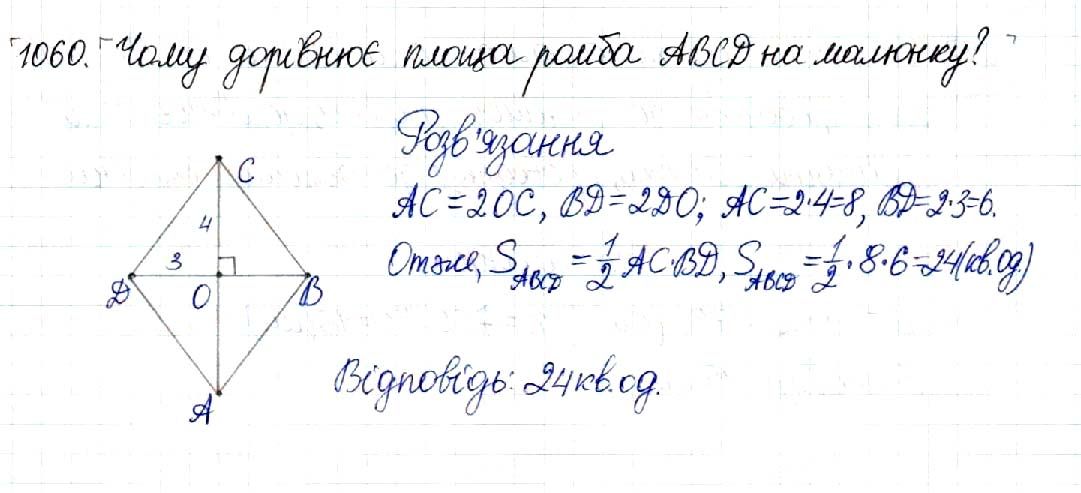 1060. Чому дорівнює площа ромба ABCD на малюнку?
Розв'язання
C
AC=2OC, BD=2DO; AC=2·4=8, BD=2·3=6.
4
3
Отже, S_ABCD = 1/2 AC·BD, S_ABCD = 1/2 · 8 · 6 = 24(кв.од)
D
O
B
Відповідь: 24кв.од.
A